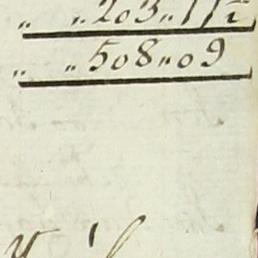 " " 203 " 11½
" " 508 " 09